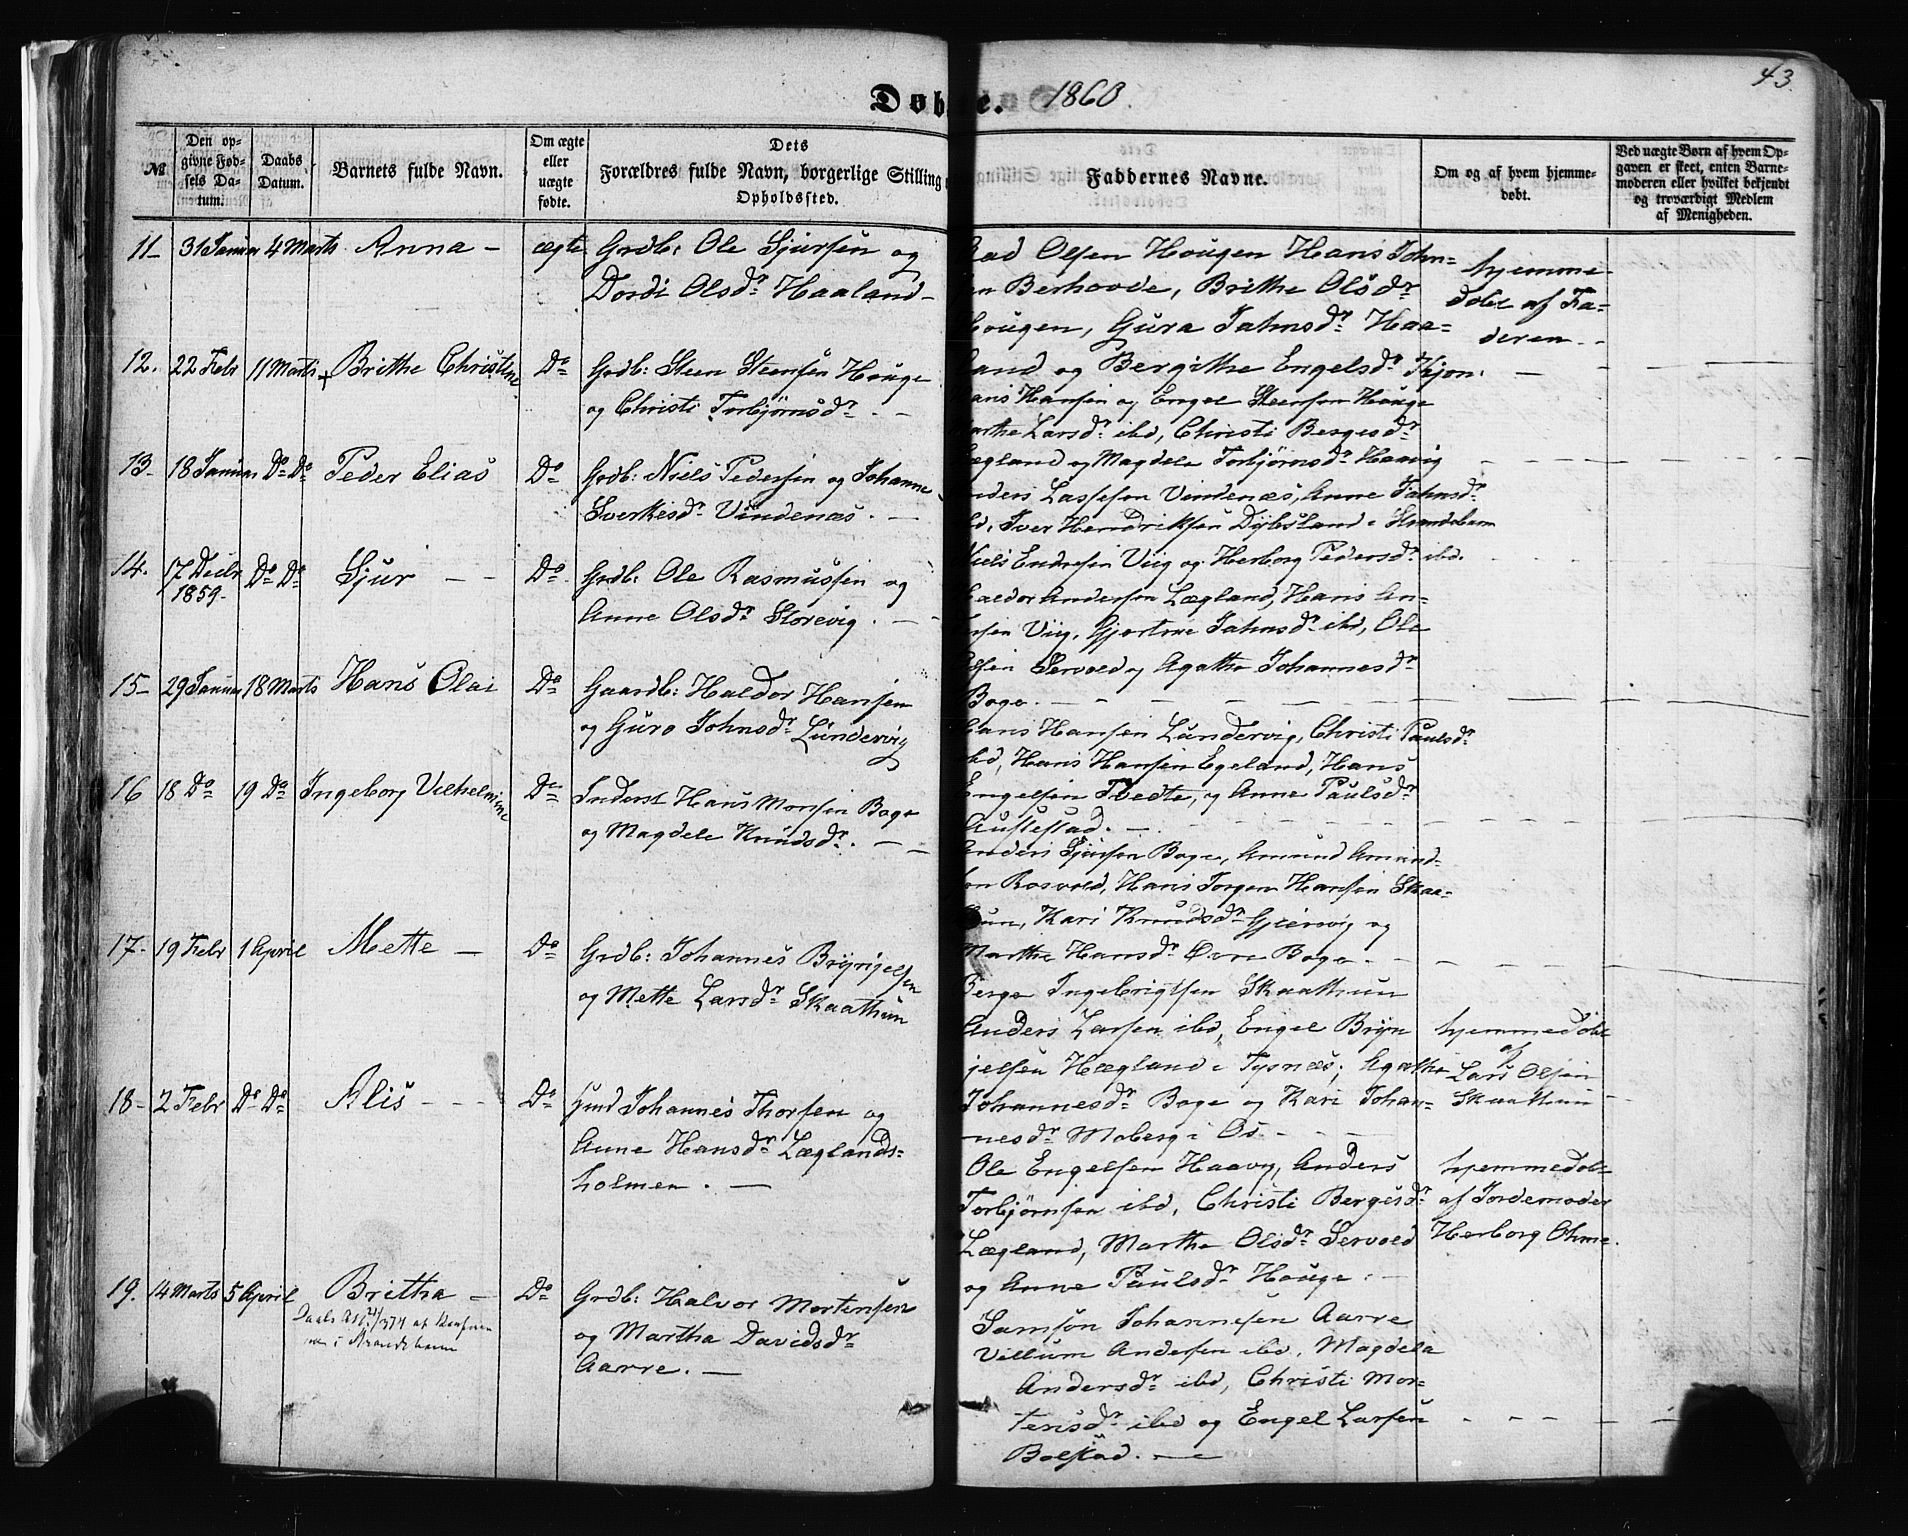 43.
Døbte. 1860
№
Den op-
givne Fød-
sels Da-
tum.
Daabs
Datum.
Barnets fulde Navn.
Om ægte
eller
uægte
fødte.
Dets
Forældres fulde Navn, borgerlige Stilling
Opholdssted.
Faddernes Navne.
Om og af hvem hjemme-
døbt.
Ved uægte Børn af hvem Op-
gaven er skeet, enten Barne-
moderen eller hvilket bekjendt
og troværdigt Medlem
af Menigheden.
11- 31 Januar 4 Marts Anna - ægte Grdb: Ole Sjursen og
Dordi Olsdr Haaland -
Olsen Hougen Hans John-
Berhovde, Brithe Olsdr
Hougen, Gura Jahnsdr Haa-
land og Bergithe Engelsdr
hjemme-
døbt af Fa-
deren -
12. 22 Febr 11 Marts + Brithe Christine Do Grdb: Steen Steensen Houge
og Christi Torbjørnsdr. -
Hans Hansen og Engel Steensen Houge
Marthe Larsdr ibd, Christi Bergesdr
Lægland og Magdele Torbjørnsdr Haavig
13- 18 Januar Do Do Peder Elias Do Grdb: Niels Pedersen og Johanne
Sverkesdr Vindenæs. -
Anders Lassesen Vindenæs, Anne Jahnsdr
ibd, Iver Hendriksen Dybsland i Strandebarm
Niels Endresen Viig og Herborg Pedersdr ibd.
14. 17 Decbr
1859. Do Do Sjur - - Do. Grdb: Ole Rasmussen og
Anne Olsdr Storevig. -
Haldor Andersen Lægland, Hans An-
dersen Viig, Gjertrue Jahnsdr ibd, Ole
Olsen Servold og Agatha Johannesdr
Boge. -
15- 29 Januar 18 Marts Hans Olai Do Gaardb: Haldor Hansen
og Guro Johnsdr Lundervig
Hans Hansen Lundervig, Christi Paulsdr
ibd, Hans Hansen Egeland, Hans
Engelsen Tvedte, og Anne Paulsdr
Austestad. -
16 18 Do 19 Do Ingeborg Vilhelmine Do Inderst Hans Monsen Boge
og Magdele Knudsdr. -
Anders Sjursen Boge, Amund Amund-
sen Rosvold, Hans Jørgen Hansen Skaa-
thun, Kari Knudsdr Gjersvig og
Marthe Hansdr Øvre Boge. -
17- 19 Febr 1 April Mette - Do Grdb: Johannes Brynjelsen
og Mette Larsdr Skaathun
Berge Ingebrigtsen Skaathun
Anders Larsen ibd, Engel Bryn
jelsen Hægland i Tysnæs, Agatha
Johannesdr Boge og Kari Johan-
nesdr Moberg i Os. -
hjemmedøbt
af
Lars Olsen
Skaathun
18- 2 Febr Do Do Alis - - - Do Johannes Thorsen og
Anne Hansdr Læglands-
holmen. -
Ole Engelsen Haavig, Anders
Torbjørnsen ibd, Christi Bergesdr
Lægland, Martha Olsdr Servold
og Anne Paulsdr Houge. -
hjemmedøbt
af Jordemoder
Herborg Ohme.
19. 14 Marts 5 April Britha - Do Grdb: Halvor Mortensen
og Martha Davidsdr
Aarre. -
i Strandebarm
Samson Johannesen Aarre
Villum Andersen ibd, Magdela
Andersdr ibd, Christi Mor-
tensdr ibd og Engel Larsen
Bolstad. -